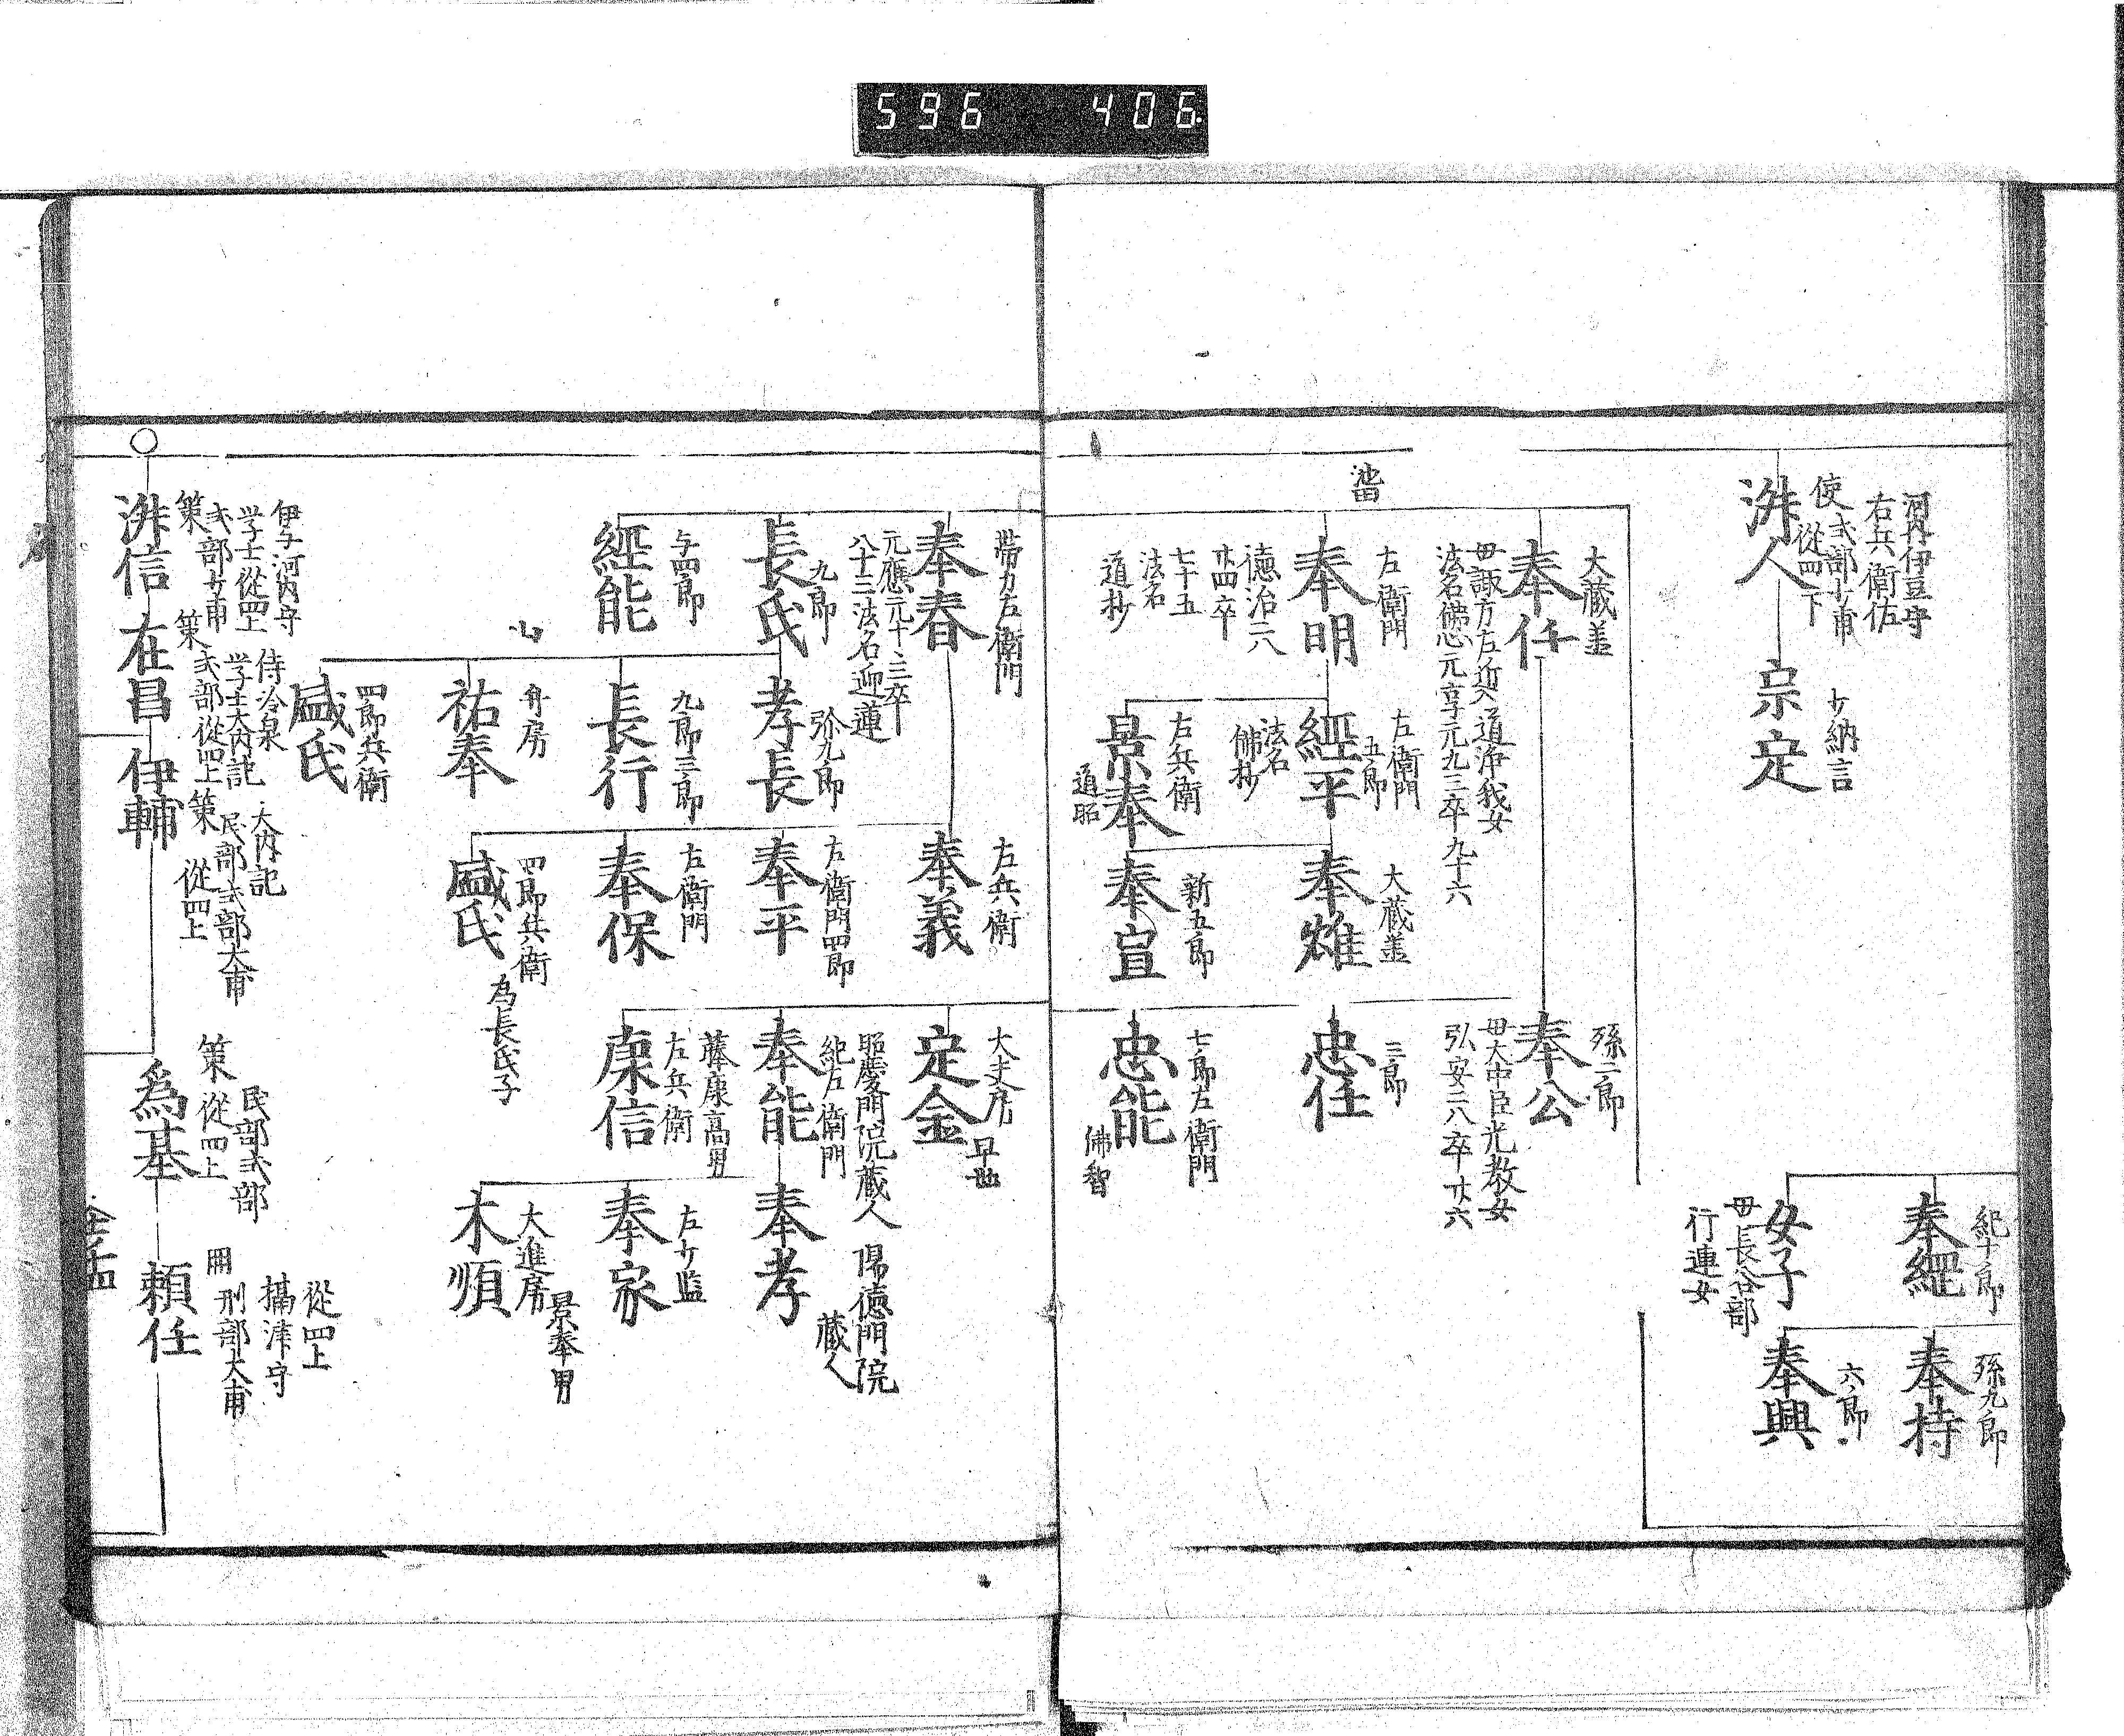 596 406
河内伊豆守
右兵衛佐
使式部少甫
從四下
淑人
少納言
宗定
紀十郎
奉經
女子
母長谷部
行連女
孫九郎
奉持
六郎
奉興
池田
大蔵丞
奉任
母諏方左近入道浄我女
法名佛心元亨元九三卒九十六
孫二郎
奉公
母大中臣光教女
弘安二八卒廿六
左衛門
奉明
徳治二八
廿四卒
七十五
法名
道抄
左衛門
五郎
經平
法名
佛抄
左兵衛
景奉
道昭
大蔵丞
奉雄
新五郎
奉宣
三郎
忠任
七郎左衛門
忠能
佛智
帯刀左衛門
奉春
元應元十二三卒
八十三法名迎蓮
九郎
長氏
与四郎
經能
弥九郎
孝長
九郎三郎
長行
弁房
祐奉
四郎兵衛
盛氏
左兵衛
奉義
左衛門四郎
奉平
左衛門
奉保
四郎兵衛
盛氏
為長氏子
大夫房
早世
定金
昭慶門院蔵人
紀左衛門
奉能
藤康高男
左兵衛
康信
陽徳門院
蔵人
奉孝
左少監
奉家
大進房
景奉男
木順
伊与河内守
学士從四上
式部少甫
策
淑信
侍冷泉
学士大内記
式部從四上
策
在昌
大内記
民部式部大甫
從四上
策
伊輔
民部式部
從四上
策
為基
從四上
攝津守
刑部大甫
頼任